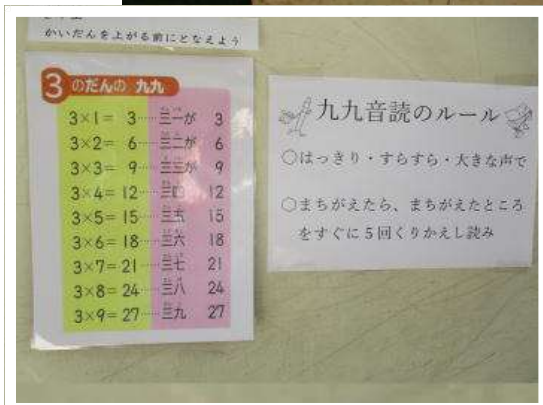 かいだんを上がる前にとなえよう
3 のだんの 九九
3×1= 3……三一が 3
3×2= 6……三二が 6
3×3= 9……三三が 9
3×4=12……三四 12
3×5=15……三五 15
3×6=18……三六 18
3×7=21……三七 21
3×8=24……三八 24
3×9=27……三九 27
九九音読のルール
○はっきり・すらすら・大きな声で
○まちがえたら、まちがえたところ
をすぐに5回くりかえし読み